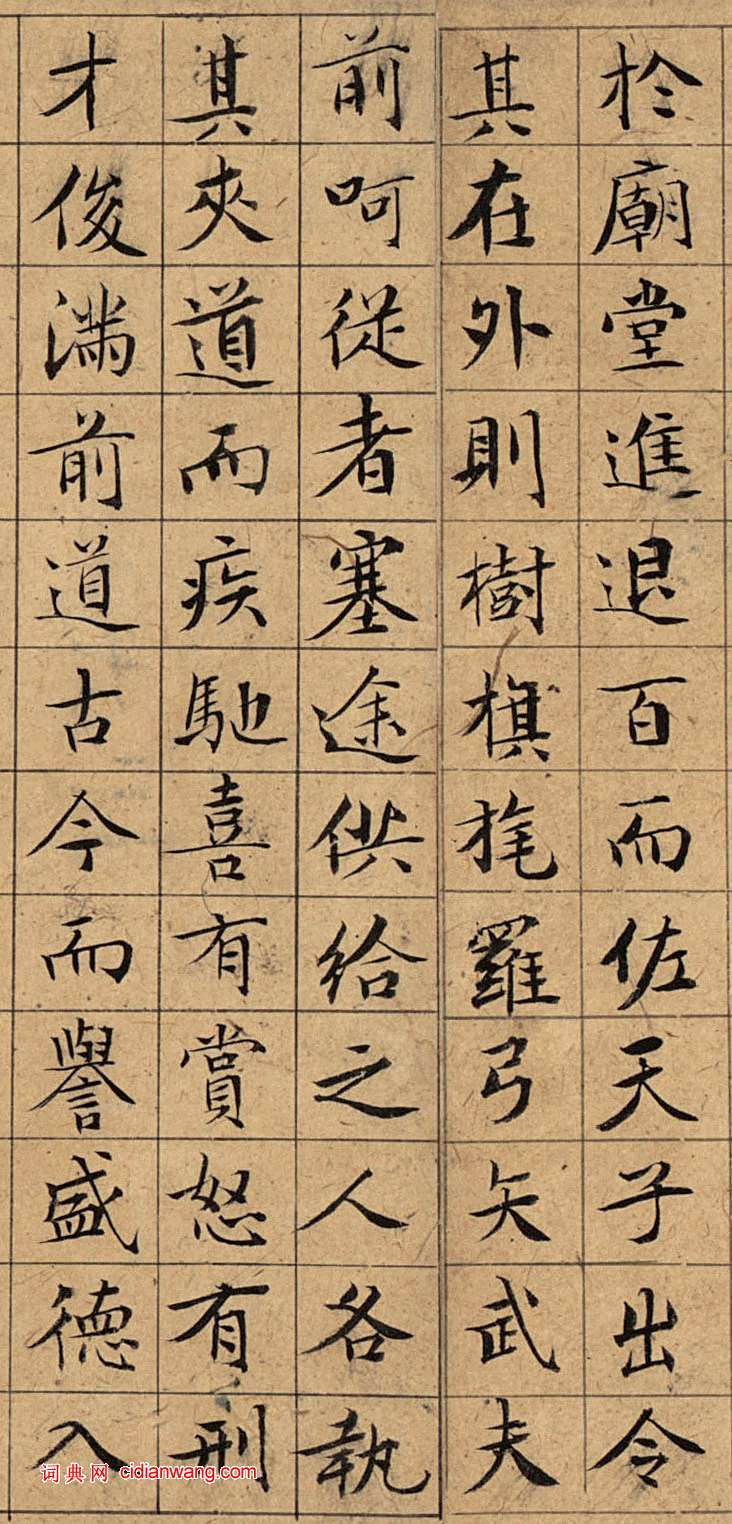 於廟堂進退百而佐天子出令
其在外則樹旗旄羅弓矢武夫
前呵從者塞途供給之人各執
其夾道而疾馳喜有賞怒有刑
才俊滿前道古今而譽盛德入
词典网 cidianwang.com